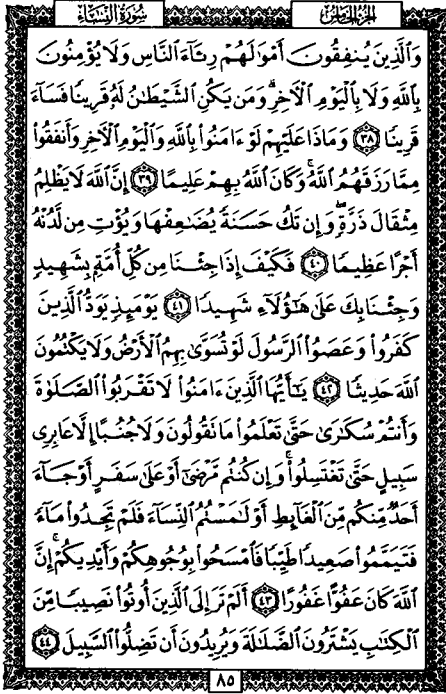 سورة النساء الجزء الخامس
وَالَّذِينَ يُنفِقُونَ أَمْوَالَهُمْ رِئَاءَ النَّاسِ وَلَا يُؤْمِنُونَ
بِاللَّهِ وَلَا بِالْيَوْمِ الْآخِرِ وَمَن يَكُنِ الشَّيْطَانُ لَهُ قَرِينًا فَسَاءَ
قَرِينًا ﴿٣٨﴾ وَمَاذَا عَلَيْهِمْ لَوْ ءَامَنُوا بِاللَّهِ وَالْيَوْمِ الْآخِرِ وَأَنفَقُوا
مِمَّا رَزَقَهُمُ اللَّهُ وَكَانَ اللَّهُ بِهِمْ عَلِيمًا ﴿٣٩﴾ إِنَّ اللَّهَ لَا يَظْلِمُ
مِثْقَالَ ذَرَّةٍ وَإِن تَكُ حَسَنَةً يُضَاعِفْهَا وَيُؤْتِ مِن لَّدُنْهُ
أَجْرًا عَظِيمًا ﴿٤٠﴾ فَكَيْفَ إِذَا جِئْنَا مِن كُلِّ أُمَّةٍ بِشَهِيدٍ
وَجِئْنَا بِكَ عَلَى هَٰؤُلَاءِ شَهِيدًا ﴿٤١﴾ يَوْمَئِذٍ يَوَدُّ الَّذِينَ
كَفَرُوا وَعَصَوُا الرَّسُولَ لَوْ تُسَوَّىٰ بِهِمُ الْأَرْضُ وَلَا يَكْتُمُونَ
اللَّهَ حَدِيثًا ﴿٤٢﴾ يَٰأَيُّهَا الَّذِينَ ءَامَنُوا لَا تَقْرَبُوا الصَّلَوٰةَ
وَأَنتُمْ سُكَٰرَىٰ حَتَّىٰ تَعْلَمُوا مَا تَقُولُونَ وَلَا جُنُبًا إِلَّا عَابِرِى
سَبِيلٍ حَتَّىٰ تَغْتَسِلُوا وَإِن كُنتُم مَّرْضَىٰ أَوْ عَلَىٰ سَفَرٍ أَوْ جَاءَ
أَحَدٌ مِّنكُم مِّنَ الْغَائِطِ أَوْ لَٰمَسْتُمُ النِّسَاءَ فَلَمْ تَجِدُوا مَاءً
فَتَيَمَّمُوا صَعِيدًا طَيِّبًا فَامْسَحُوا بِوُجُوهِكُمْ وَأَيْدِيكُمْ إِنَّ
اللَّهَ كَانَ عَفُوًّا غَفُورًا ﴿٤٣﴾ أَلَمْ تَرَ إِلَى الَّذِينَ أُوتُوا نَصِيبًا مِّنَ
الْكِتَٰبِ يَشْتَرُونَ الضَّلَٰلَةَ وَيُرِيدُونَ أَن تَضِلُّوا السَّبِيلَ ﴿٤٤﴾
٨٥